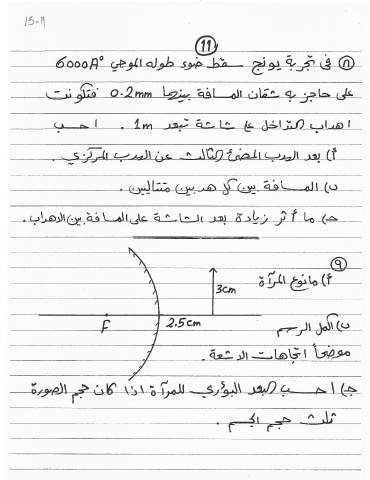 15-11
(11)
(8) في تجربة يونج سقط ضوء طوله الموجي 6000A°
على حاجز به شقان المسافة بينهما 0.2mm فتكونت
اهداب التداخل على شاشة تبعد 1m . احسب
أ) بعد الهدب المضئ الثالث عن الهدب المركزي .
ب) المسافة بين كل هدبين متتاليين .
ج) ما أثر زيادة بعد الشاشة على المسافة بين الاهداب .
(9)
أ) ما نوع المرآة
3cm
F
2.5cm
ب) اكمل الرسم
موضحاً اتجاهات الاشعة .
ج) احسب البعد البؤري للمرآة اذا كان حجم الصورة
ثلث حجم الجسم .